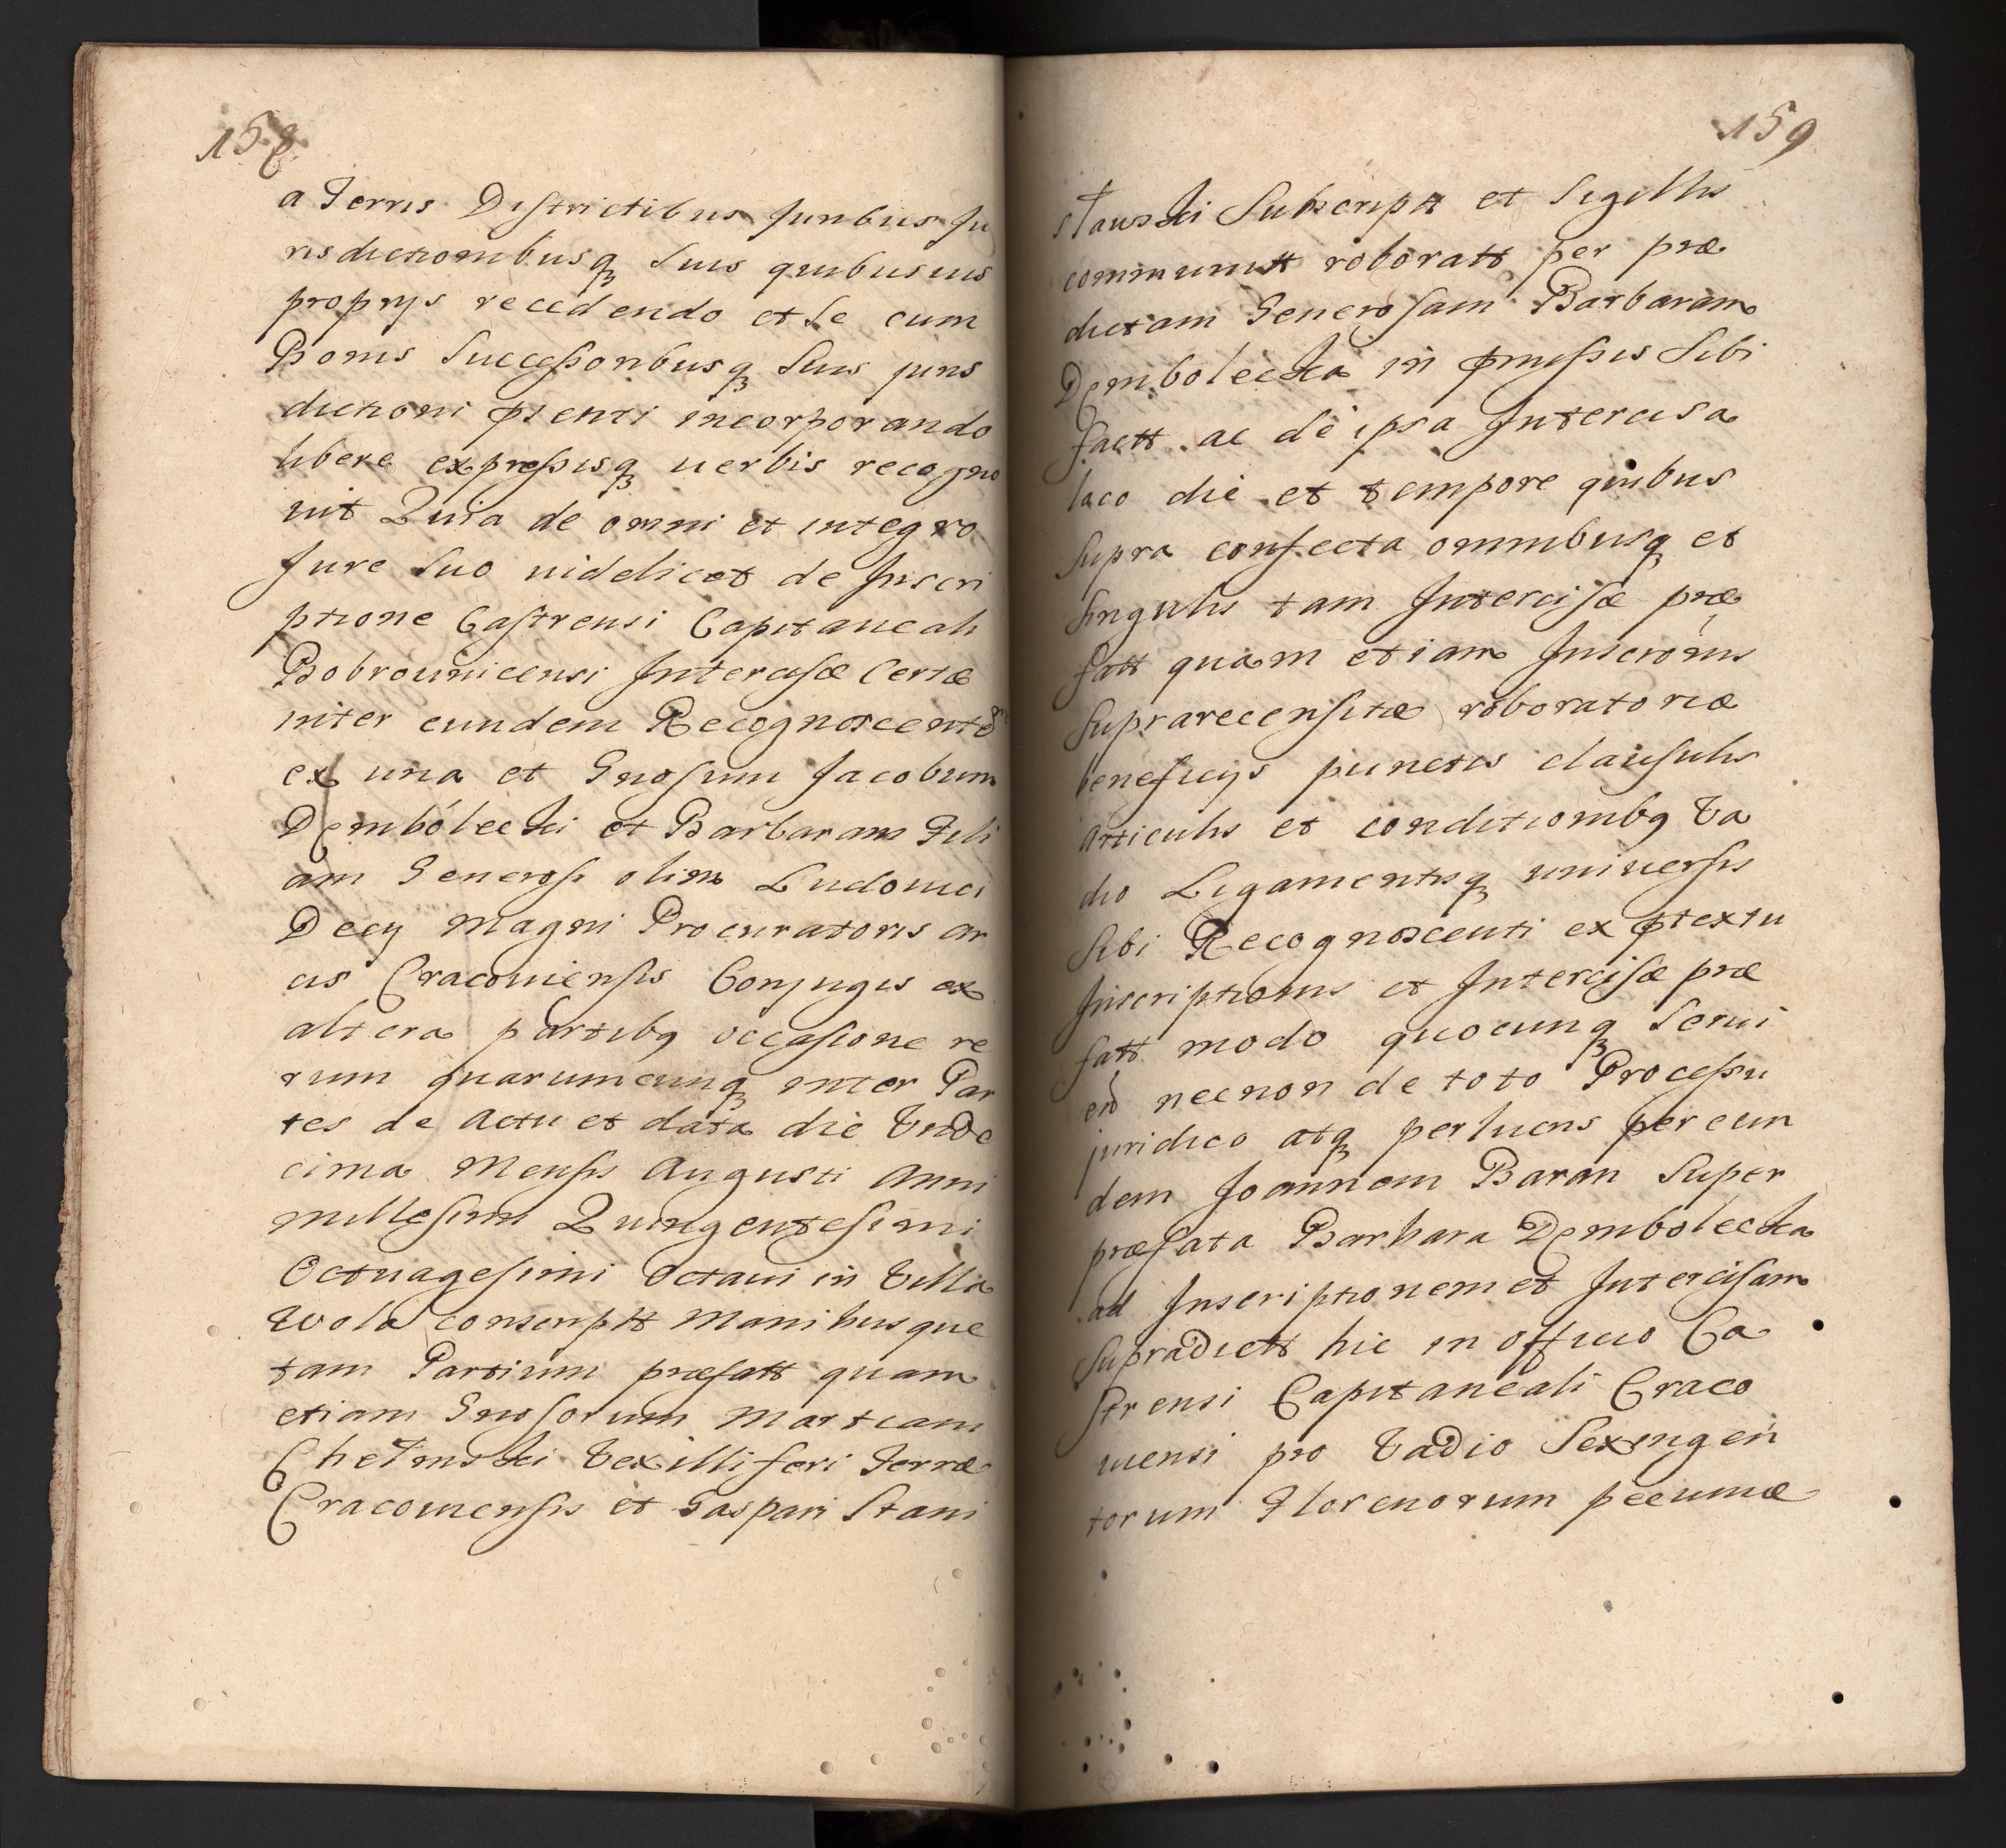 158
a Terris Districtibus Juribus Ju
risdictionibusq suis quibusuis
proprijs recedendo et se cum
Bonis Successoribusq Suis juris
dictioni pñenti incorporando
libere expressisq uerbis recogno
uit Quia de omni et integro
Jure Suo uidelicet de Inscri
ptione Castrensi Capitaneali
Bobrounicensi Intercisæ Certæ
inter eundem Recognoscente
ex una et Gnosum Jacobum
Dembólecki et Barbaram Fili
am Generosi olim Ludouici
Decy Magni Procuratoris Ar
cis Cracouiensis Conjuges ex
altera partibq occasione re
rum quarumcunq inter Par
tes de Actu et data die Unde
cima Mensis Augusti Anni
millesimi Quingentesimi
Octuagesimi Octaui in Villa
Wola conscriptt Manibusque
tam Partium præfatt quam
etiam Gnosorum Martiani
Chełmski Vexilliferi Terræ
Cracouiensis et Gaspari Stani
159
sławski Subscriptt et Sigillis
communitt roboratt per præ
dictam Generosam Barbaram
Dembolecka in pmissis Sibi
factt ac de ipsa Intercisa
loco die et tempore quibus
Supra confecta omnibusq et
singulis tam Intercisæ præ
fatt quam etiam Inscrōnis
Suprarecensitæ roboratoriæ
beneficijs punctis clausulis
articulis et conditionibq Va
dio Ligamentisq uniuersis
Sibi Recognoscenti ex ptextu
Inscriptionis et Intercisæ præ
fatt modo quocunq Serui
eñ necnon de toto Processu
juridico atq perlucris per eun
dem Joannem Baran Super
præfata Barbara Dembolecka
ad Inscriptionem et Intercisam
Supradictt hic in officio Ca
strensi Capitaneali Craco
uiensi pro Vadio Sexingen
torum Florenorum pecuniæ